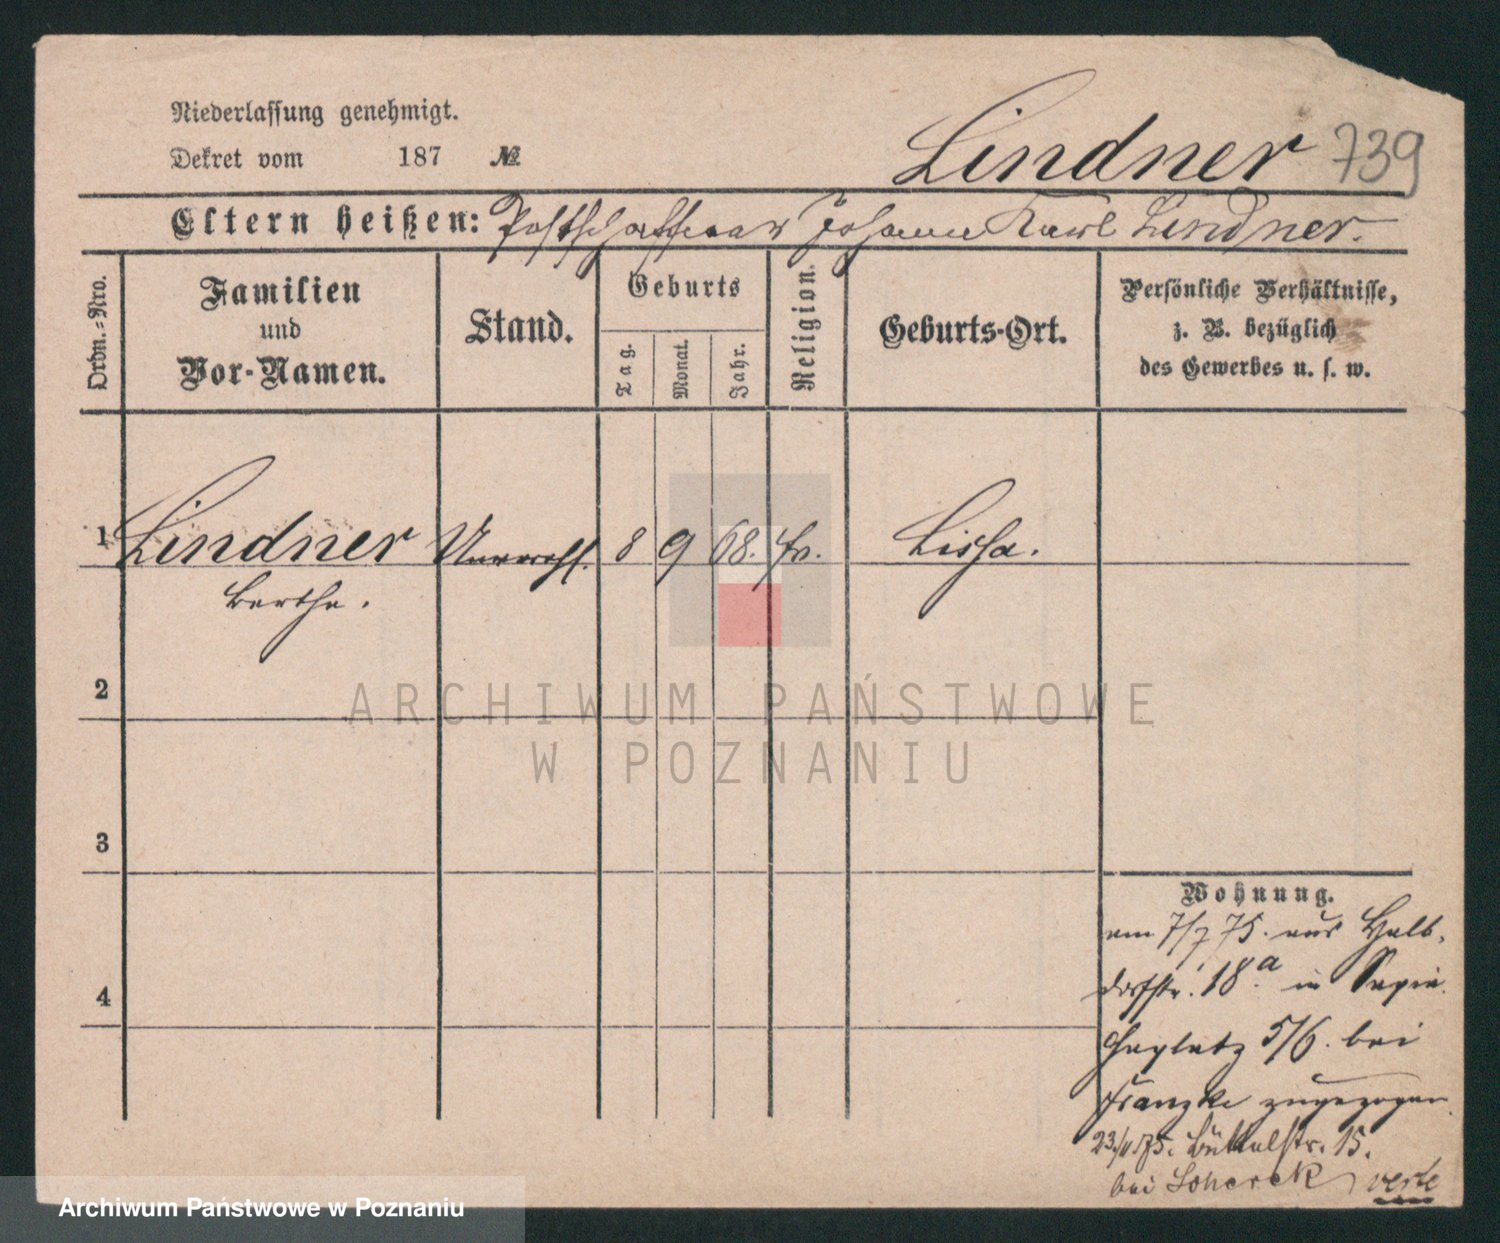 Niederlassung genehmigt.
Dekret vom 187 №
Lindner 739
Eltern heißen: Postschaffner Johann Karl Lindner.
Ordn.-Nro.
Familien
und
Vor-Namen.
Stand.
Geburts
Tag.
Monat.
Jahr.
Religion.
Geburts-Ort.
Persönliche Verhältnisse,
z. B. bezüglich
des Gewerbes u. s. w.
1 Lindner Unvereh. 8 9 68. Ev. Lissa.
Bertha.
ARCHIWUM PAŃSTWOWE
W POZNANIU
2
3
4
Wohnung.
am 7/7 75. aus Halb-
dorfstr. 18.a in Sapie-
haplatz 5/6. bei
Franzke zugezogen.
23/11 75. Büttelstr. 15.
bei verte
Archiwum Państwowe w Poznaniu